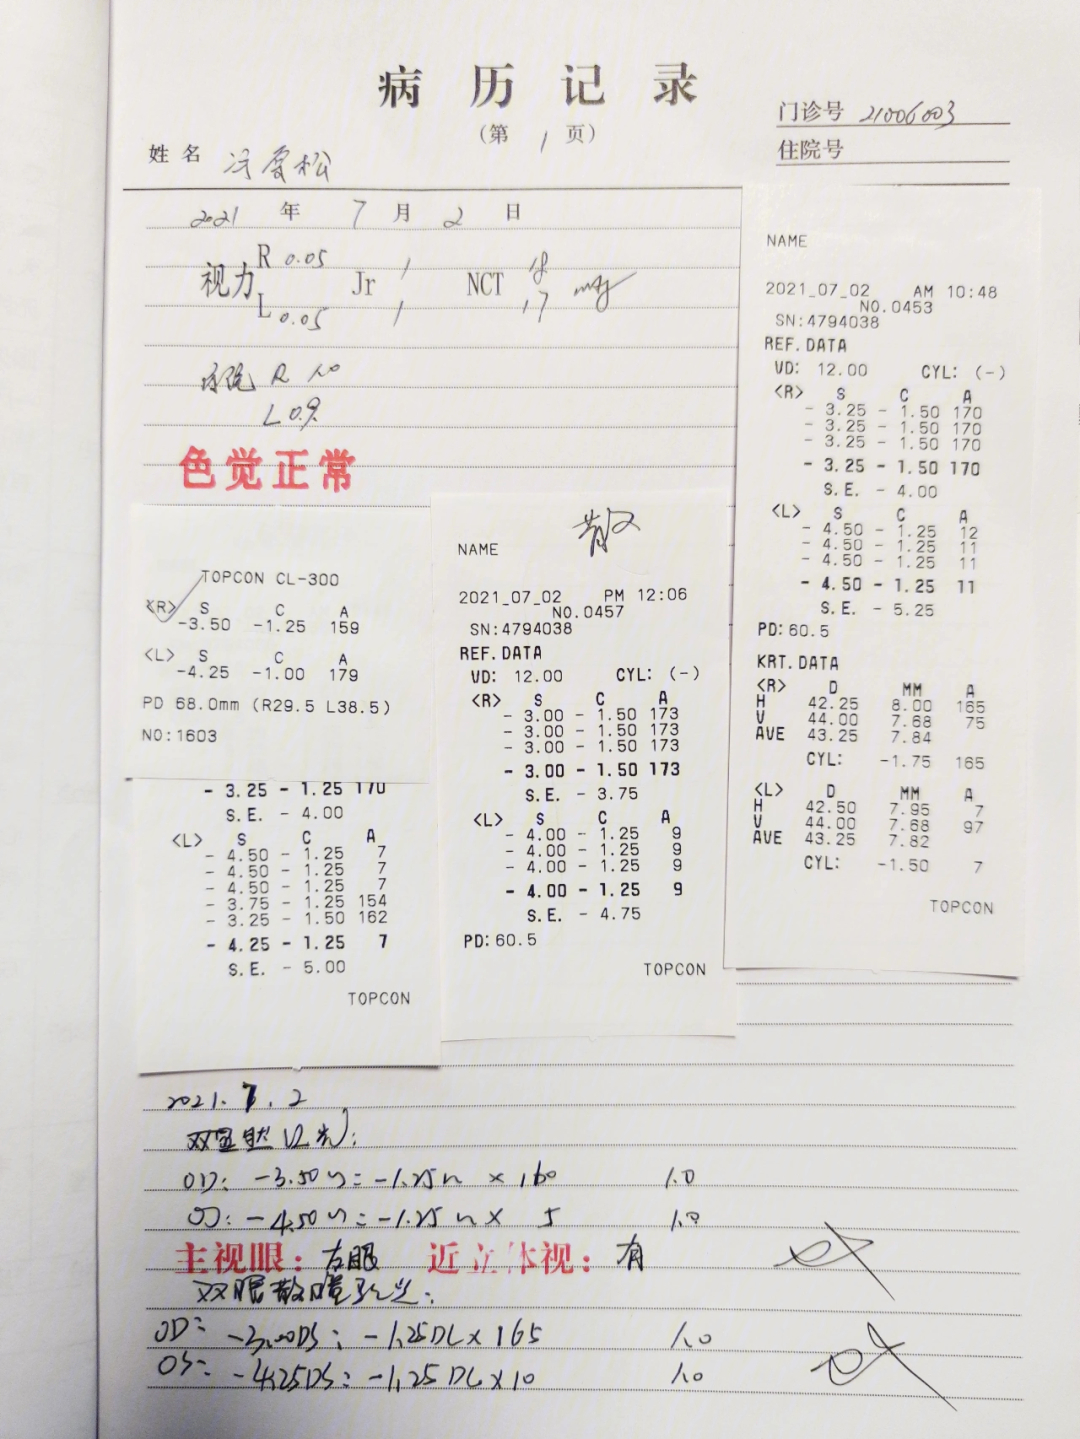 病历记录
(第 1 页)
门诊号 21006003
住院号
姓名
2021 年 7 月 2 日
视力 R 0.05 Jr 1 NCT 18
L 0.05 1 17
R 1.0
L 0.9
色觉正常
NAME
2021_07_02 AM 10:48
NO.0453
SN:4794038
REF.DATA
VD: 12.00 CYL: (-)
<R> S C A
- 3.25 - 1.50 170
- 3.25 - 1.50 170
- 3.25 - 1.50 170
- 3.25 - 1.50 170
S.E. - 4.00
<L> S C A
- 4.50 - 1.25 12
- 4.50 - 1.25 11
- 4.50 - 1.25 11
- 4.50 - 1.25 11
S.E. - 5.25
PD:60.5
KRT.DATA
<R> D MM A
H 42.25 8.00 165
V 44.00 7.68 75
AVE 43.25 7.84
CYL: -1.75 165
<L> D MM A
H 42.50 7.95 7
V 44.00 7.68 97
AVE 43.25 7.82
CYL: -1.50 7
TOPCON
TOPCON CL-300
<R> S C A
-3.50 -1.25 159
<L> S C A
-4.25 -1.00 179
PD 68.0mm (R29.5 L38.5)
NO:1603
- 3.25 - 1.25 170
S.E. - 4.00
<L> S C A
- 4.50 - 1.25 7
- 4.50 - 1.25 7
- 4.50 - 1.25 7
- 3.75 - 1.25 154
- 3.25 - 1.50 162
- 4.25 - 1.25 7
S.E. - 5.00
TOPCON
散
NAME
2021_07_02 PM 12:06
NO.0457
SN:4794038
REF.DATA
VD: 12.00 CYL: (-)
<R> S C A
- 3.00 - 1.50 173
- 3.00 - 1.50 173
- 3.00 - 1.50 173
- 3.00 - 1.50 173
S.E. - 3.75
<L> S C A
- 4.00 - 1.25 9
- 4.00 - 1.25 9
- 4.00 - 1.25 9
- 4.00 - 1.25 9
S.E. - 4.75
PD:60.5
TOPCON
2021.7.2
OD: -3.50 -1.25 × 160 1.0
OS: -4.50 -1.25 × 5 1.0
主视眼: 右眼 近立体视: 有
双眼散瞳验光:
OD: -3.00DS: -1.25DC×165 1.0
OS: -4.25DS: -1.25DC×10 1.0